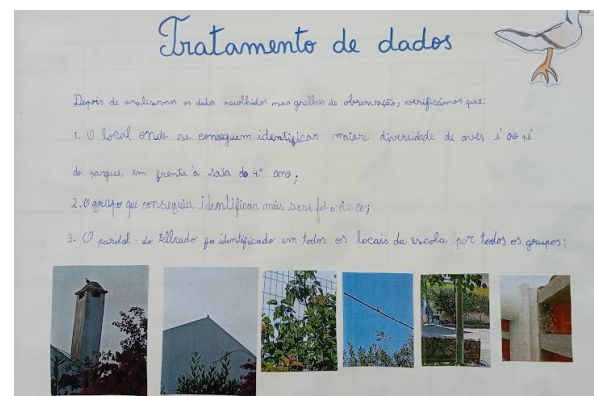 Tratamento de dados
Depois de analisarmos os dados recolhidos nas grelhas de observação, verificámos que:
1. O local onde se conseguem identificar maior diversidade de aves é ao pé
do parque, em frente à sala do 4.º ano;
2. O grupo que conseguiu identificar mais sons foi o cinco;
3. O pardal-do-telhado foi identificado em todos os locais da escola por todos os grupos;